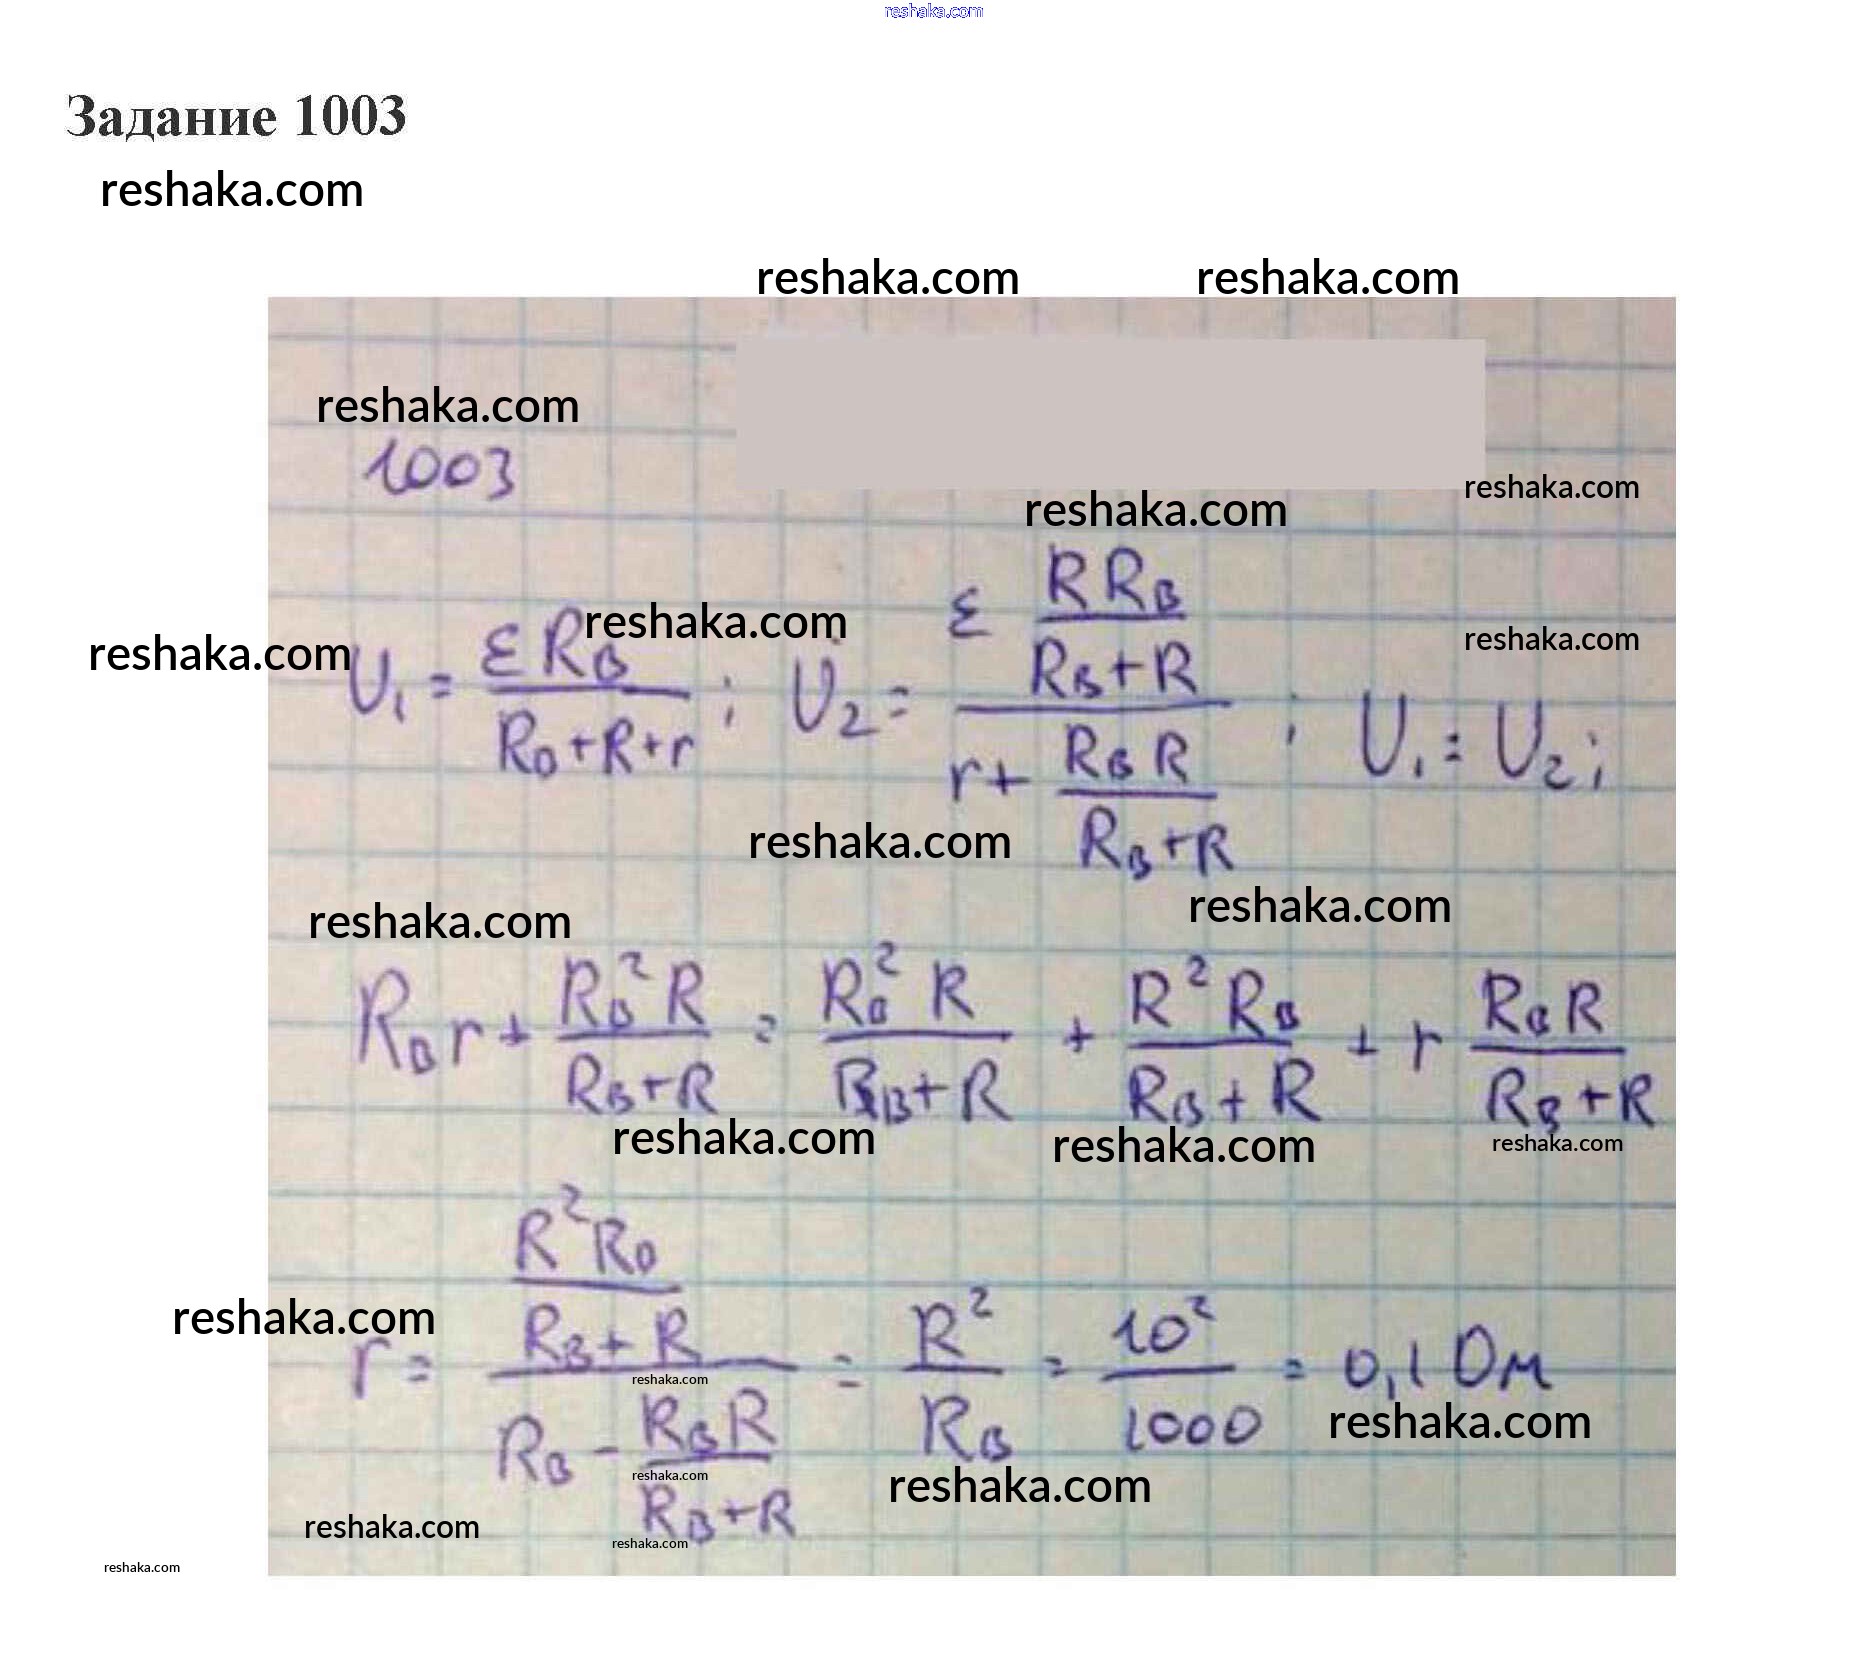 reshaka.com
Задание 1003
reshaka.com
reshaka.com reshaka.com
reshaka.com
1003
reshaka.com
reshaka.com
reshaka.com
reshaka.com
reshaka.com
U₁ = εR_B / (R_B + R + r) ; U₂ = (ε RR_B / (R_B + R)) / (r + R_B R / (R_B + R)) ; U₁ = U₂ ;
reshaka.com
reshaka.com
reshaka.com
R_B r + R_B² R / (R_B + R) = R_B² R / (R_B + R) + R² R_B / (R_B + R) + r R_B R / (R_B + R)
reshaka.com
reshaka.com
reshaka.com
reshaka.com
r = (R² R_B / (R_B + R)) / (R_B - R_B R / (R_B + R)) = R² / R_B = 10² / 1000 = 0,1 Ом
reshaka.com
reshaka.com
reshaka.com
reshaka.com
reshaka.com
reshaka.com
reshaka.com